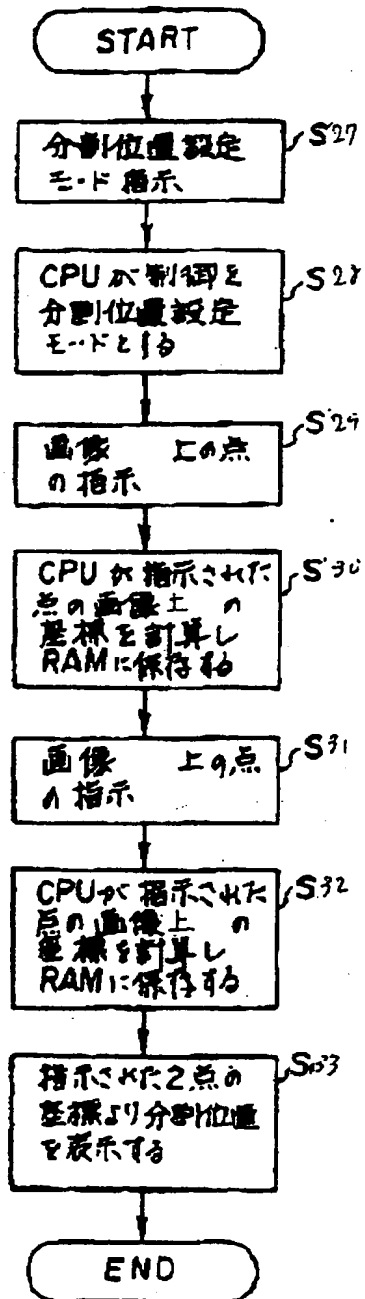 START
分割位置設定
モード指示
S27
CPUが制御を
分割位置設定
モードとする
S28
画像 上の点
の指示
S29
CPUが指示された
点の画像上 の
座標を計算し
RAMに保存する
S30
画像 上の点
の指示
S31
CPUが指示された
点の画像上 の
座標を計算し
RAMに保存する
S32
指示された2点の
座標より分割位置
を表示する
S33
END